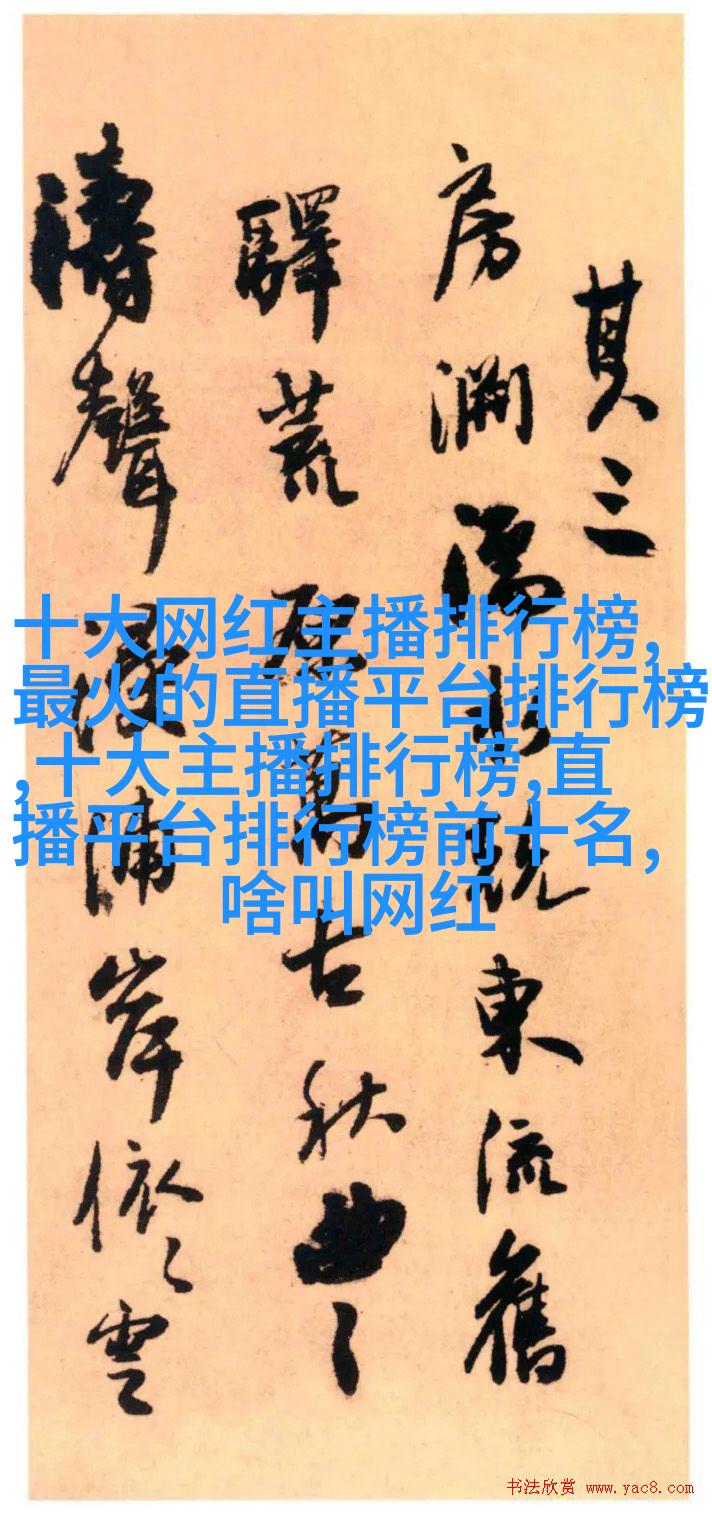 其三
房澗濡將就東流舊
驛荒歷萬古秋曲曲
濤聲漫浦岸依依雲
十大网红主播排行榜,
最火的直播平台排行榜
,十大主播排行榜,直
播平台排行榜前十名,
啥叫网红
书法欣赏 www.yac8.com